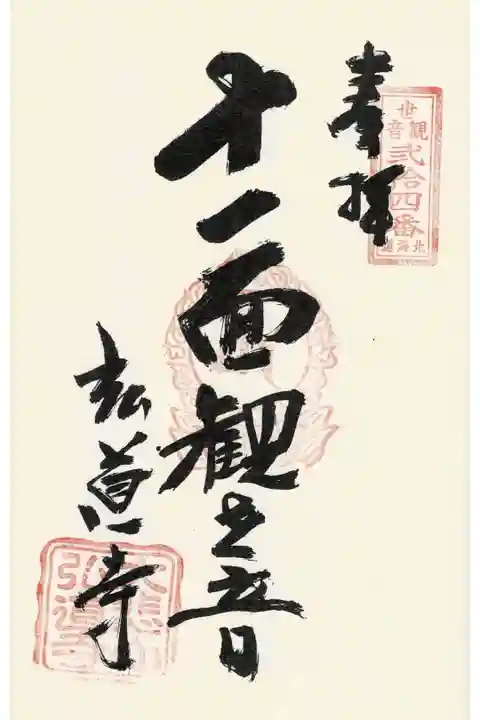 奉拝
觀世音
弐拾四番
北海道
十一面観世音
弘道寺
弘道寺